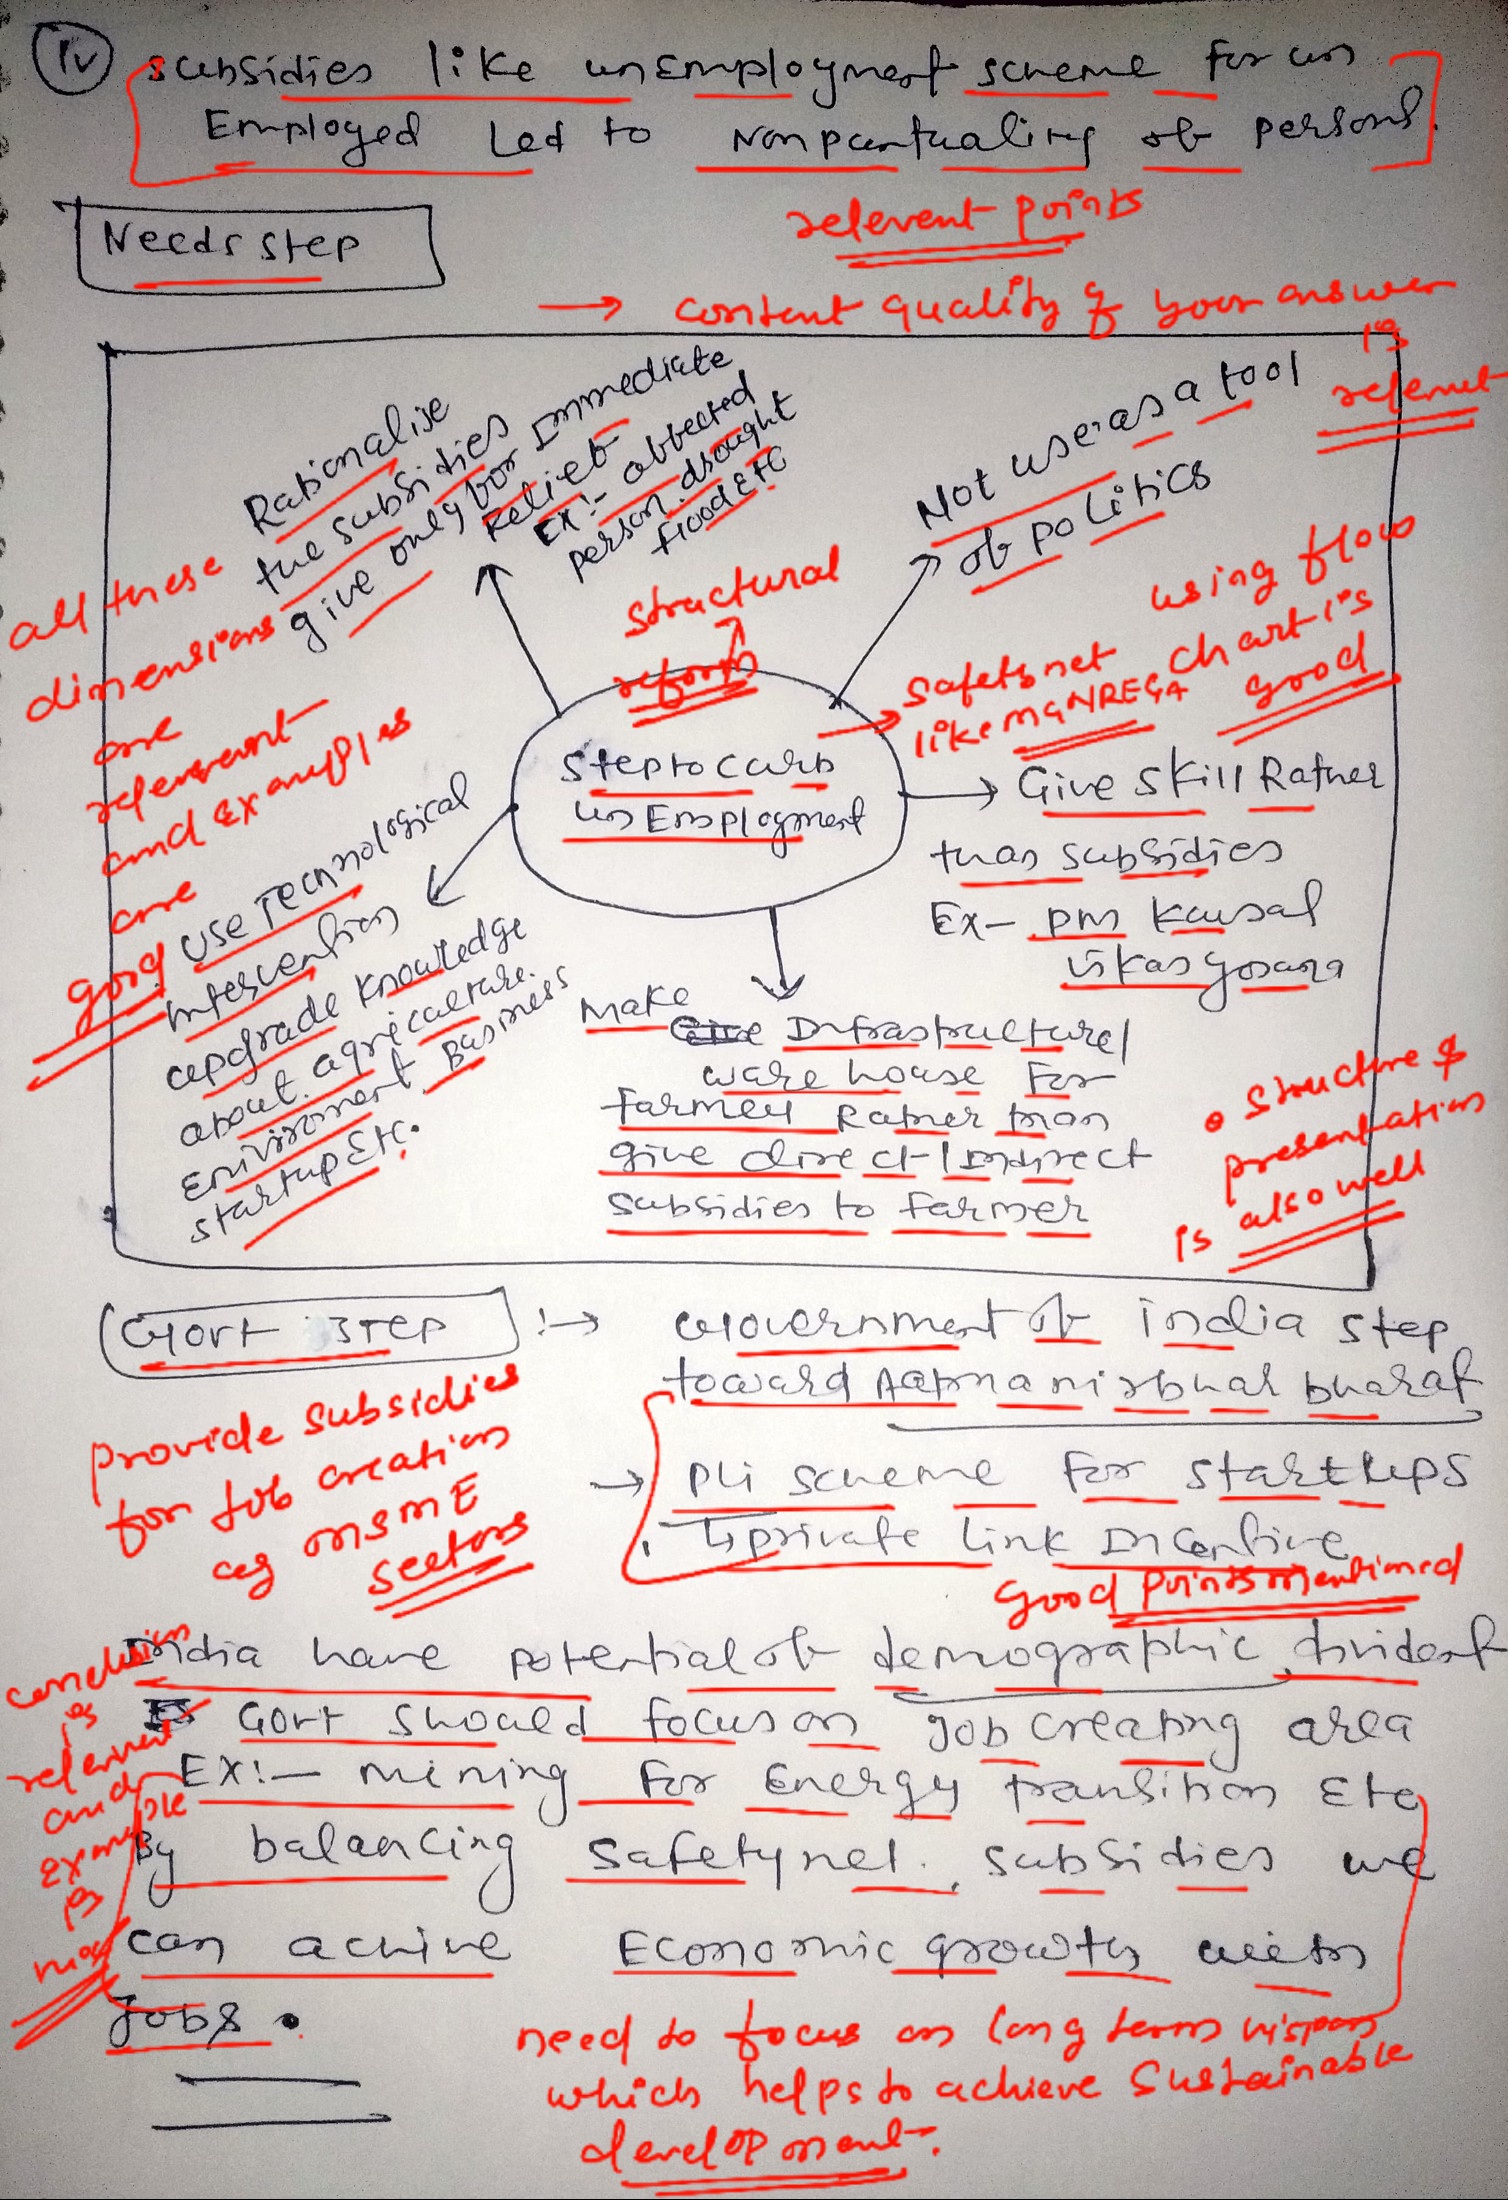 iv subsidies like unEmployment scheme for un
Employed Led to Nonpuntuality of persons.
relevent points
Needs step
→ content quality of your answer
is
relevnt
Rationalise
the subsidies
give only for Immediate
Relief
Ex:- affected
person. drought
flood Etc
Not use as a tool
of politics
all these
dimensions
are
relevent
and Examples
are
good
structural
reform
safety net
like MGNREGA
using flow
chart is
good
Step to curb
unEmployment
→ Give skill Rather
than subsidies
Ex- pm Kausal
vikas yojana
use Technological
Intervention
upgrade knowledge
about. agriculture.
Enviroment, Business
startup Etc.
Make Give Infrastructure/
ware house for
farmer Rather than
give direct/Indirect
subsidies to farmer
• structure &
presentation
is also well
Govt step :→ Government of india step
toward Aatmanirbhar bharat
provide subsidies
for Job creation
eg MSME
sectors
→ PLI scheme for startups
↳ private link Incentive
Good points mentioned
conclusion
is
relevnt
and
example
is
nice
India have potential of demographic divident
Govt should focus on Job creating area
Ex:- mining for Energy transition Etc
By balancing safetynet, subsidies we
can achive Economic growth with
Jobs.
need to focus on long term vision
which helps to achieve sustainable
development.